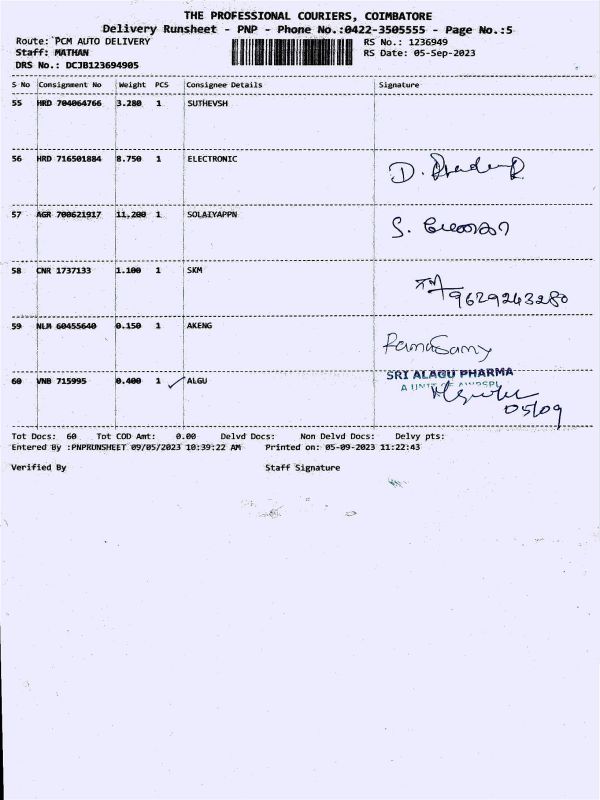 THE PROFESSIONAL COURIERS, COIMBATORE
Delivery Runsheet - PNP - Phone No.:0422-3505555 - Page No.:5
Route: PCM AUTO DELIVERY RS No.: 1236949
Staff: MATHAN RS Date: 05-Sep-2023
DRS No.: DCJB123694905
S No Consignment No Weight PCS Consignee Details Signature
55 HRD 704064766 3.280 1 SUTHEVSH
56 HRD 716501884 8.750 1 ELECTRONIC D.
57 AGR 700621917 11.200 1 SOLAIYAPPN S.
58 CNR 1737133 1.100 1 SKM
9629243280
59 NLM 60455640 0.150 1 AKENG
RamaSamy
60 VNB 715995 0.400 1 ✓ ALGU SRI ALAGU PHARMA
A UNIT OF
05/09
Tot Docs: 60 Tot COD Amt: 0.00 Delvd Docs: Non Delvd Docs: Delvy pts:
Entered By :PNPRUNSHEET 09/05/2023 10:39:22 AM Printed on: 05-09-2023 11:22:43
Verified By Staff Signature